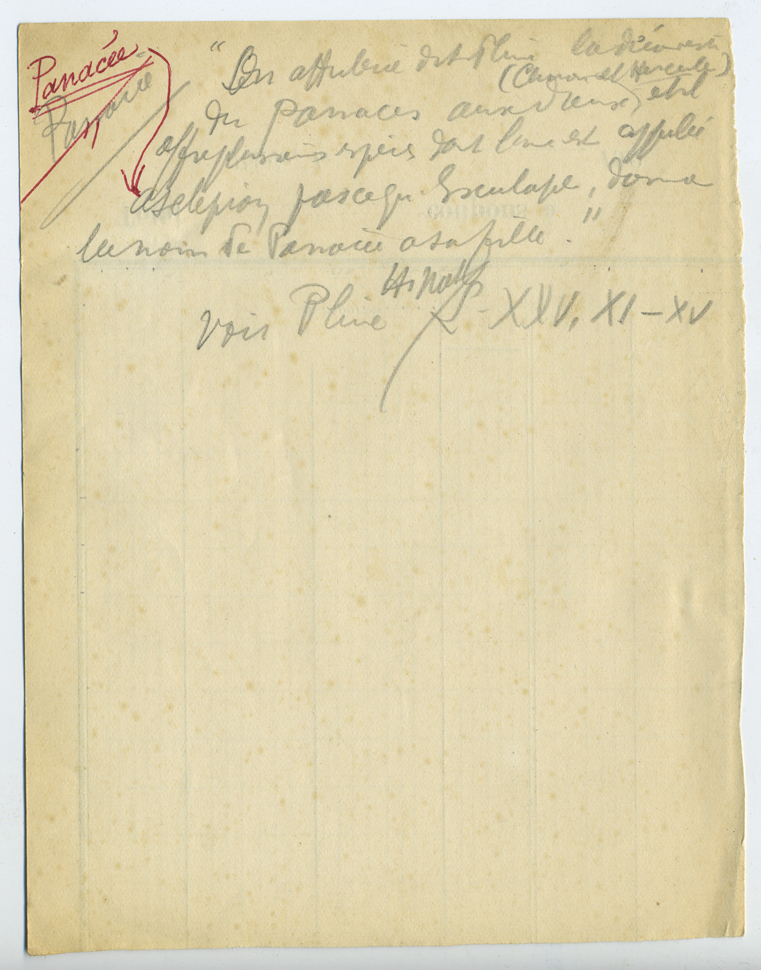 Panacée
Panacée
"On attribue dit Pline la découverte
(Chiron et Hercule)
du Panaces aux dieux, et il
offre plusieurs espèces dont l'une est appelée
asclepion parce qu'Esculape, donna
le nom de Panacée a sa fille."
Hist nat
voir Pline L - XXV, XI - XV